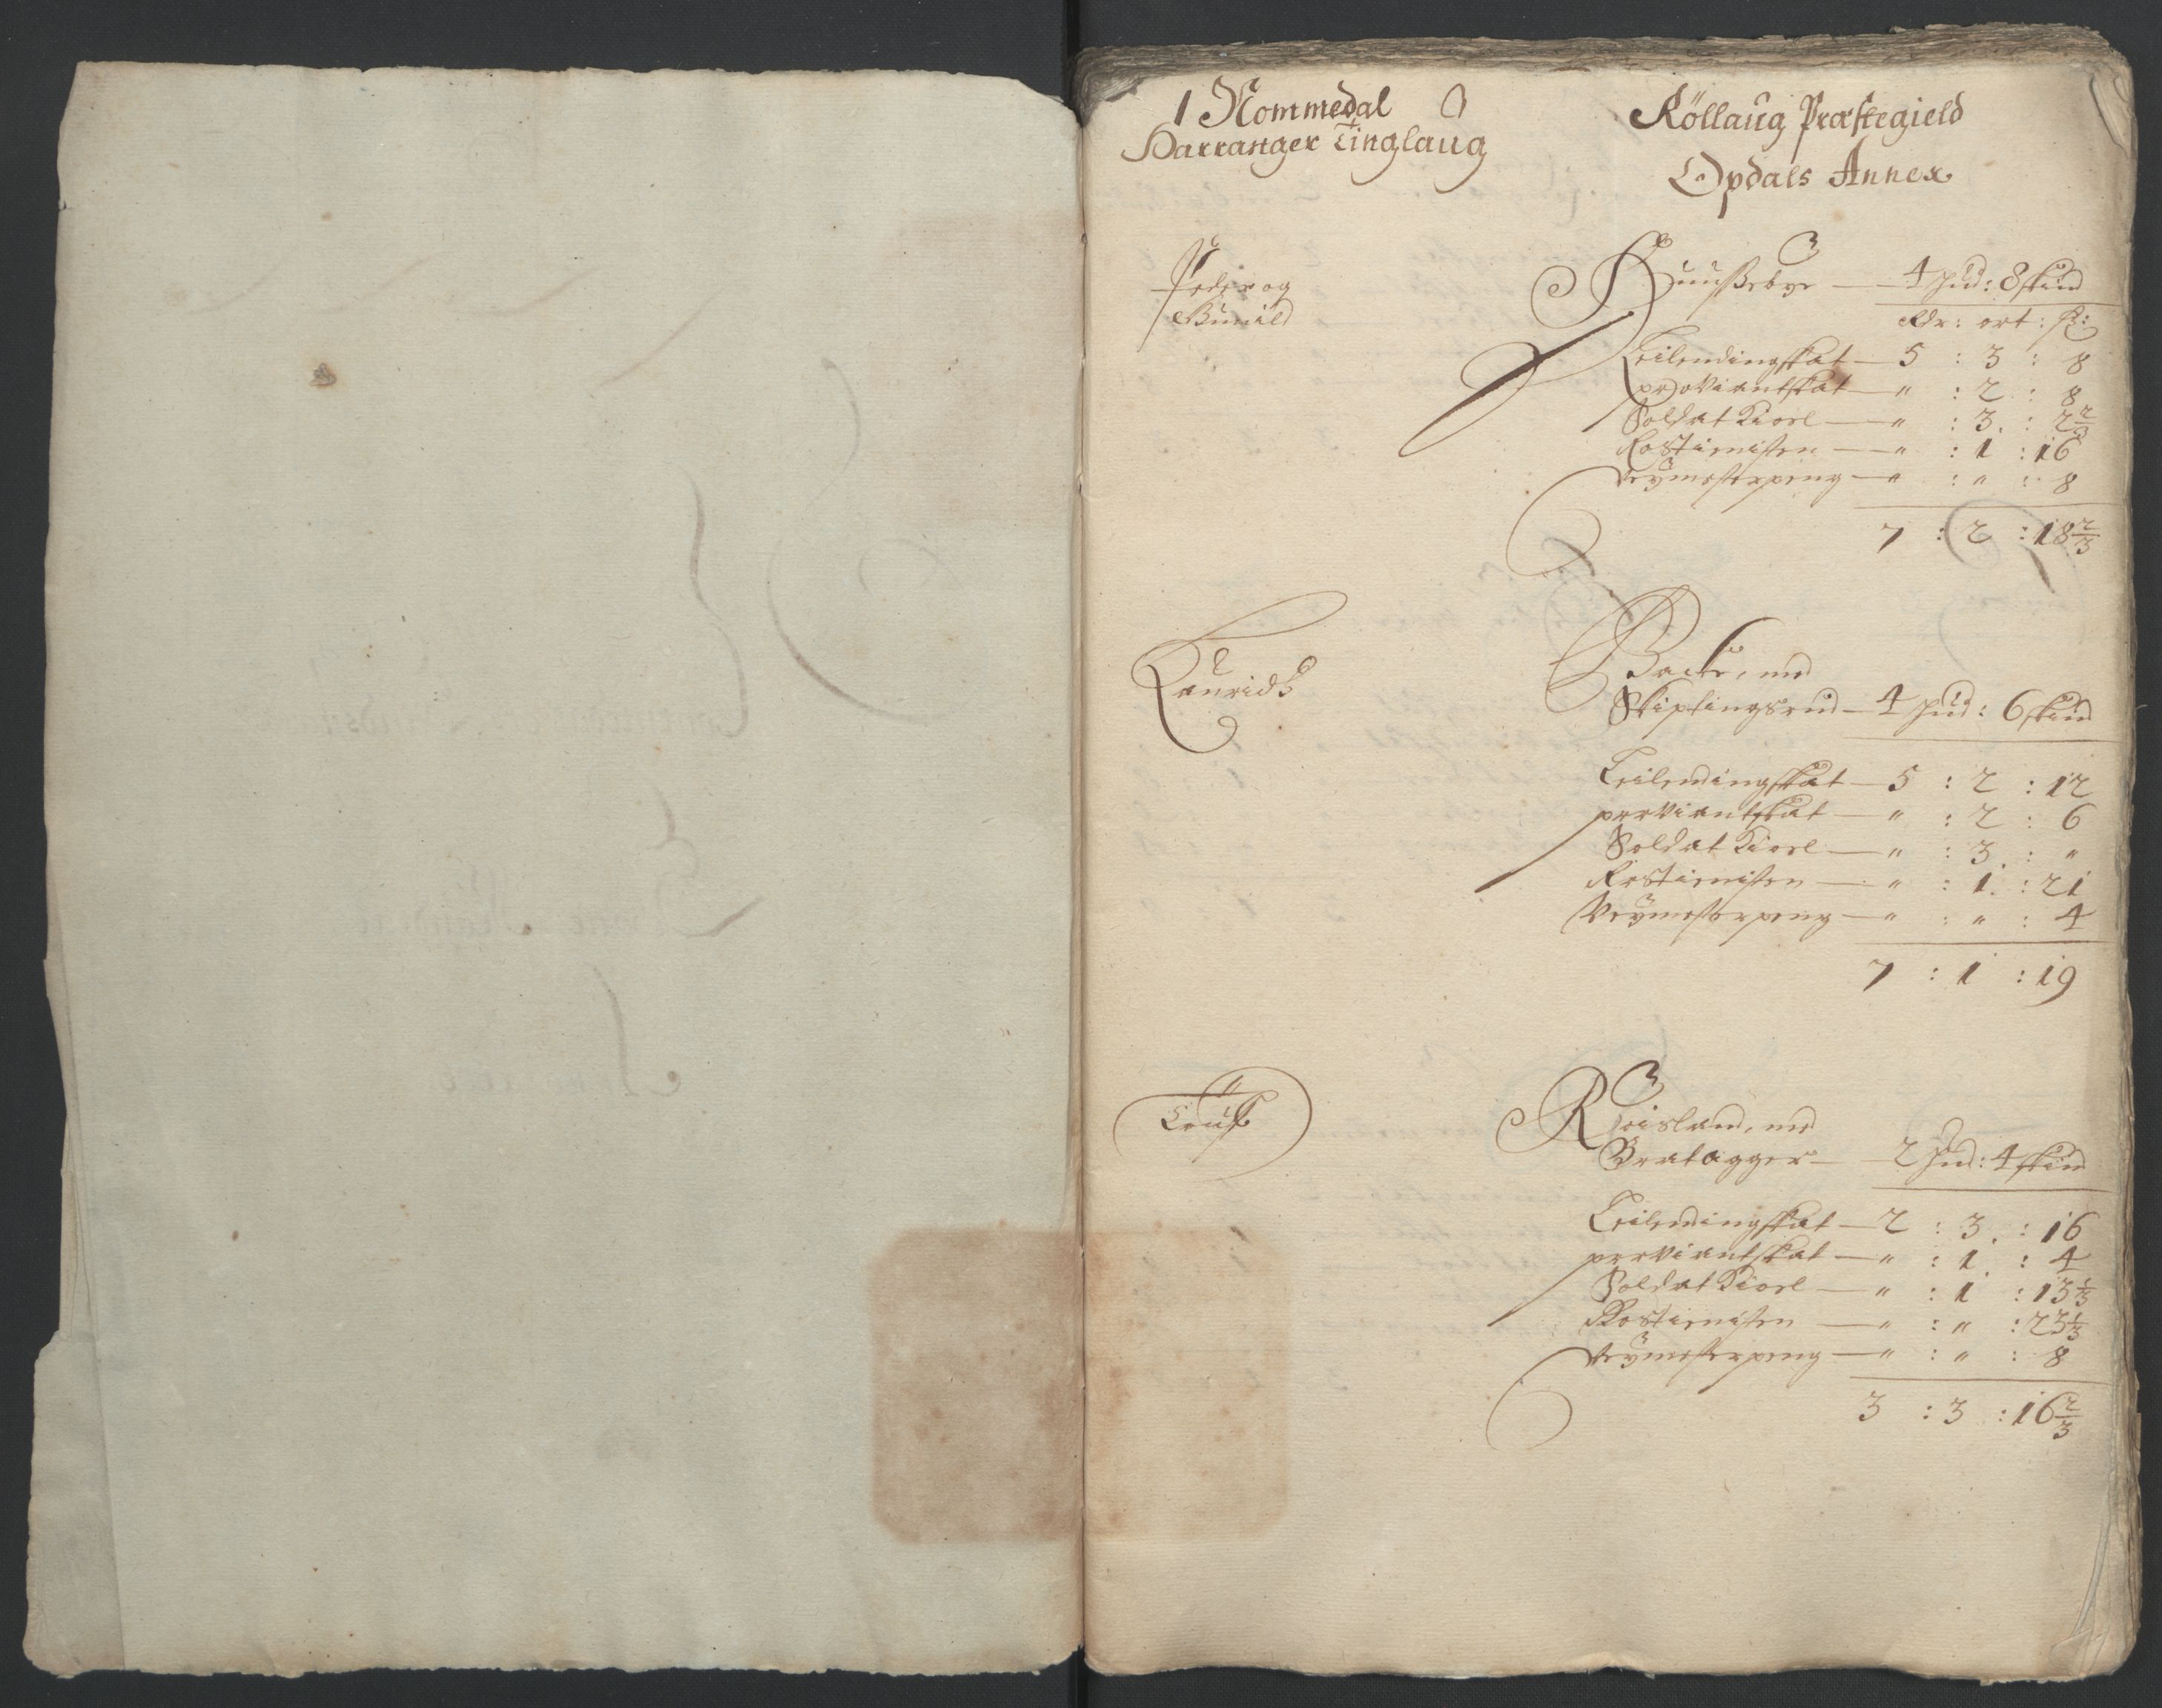 1 Nommedal
Barranger Tinglaug
Röllaug Præstegield
Opdals Annex
Peder og
Gunild
Huussebye — 4 hud: 8 skind
Rdr: ort: ß:
Leilendingskat — 5 : 3 : 8
proviantskat — " : 2 : 8
Soldat Kiole — " : 3 : 2 2/3
Rostienisten — " : 1 : 16
Veymesterpeng — " : " : 8
7 : 2 : 18 2/3
Lauridß
Backe, med
Skiplingsrud — 4 hud: 6 skind
Leilendingskat — 5 : 2 : 12
proviantskat — " : 2 : 6
Soldat Kiole — " : 3 : "
Rostienisten — " : 1 : 21
Veymesterpeng — " : " : 4
7 : 1 : 19
Reisland, med
Bratagger — 2 hud: 4 skind
Leilendingskat — 2 : 3 : 16
proviantskat — " : 1 : 4
Soldat Kiole — " : 1 : 13 1/3
Rostienisten — " : " : 23 1/3
Veymesterpeng — " : " : 8
3 : 3 : 16 2/3